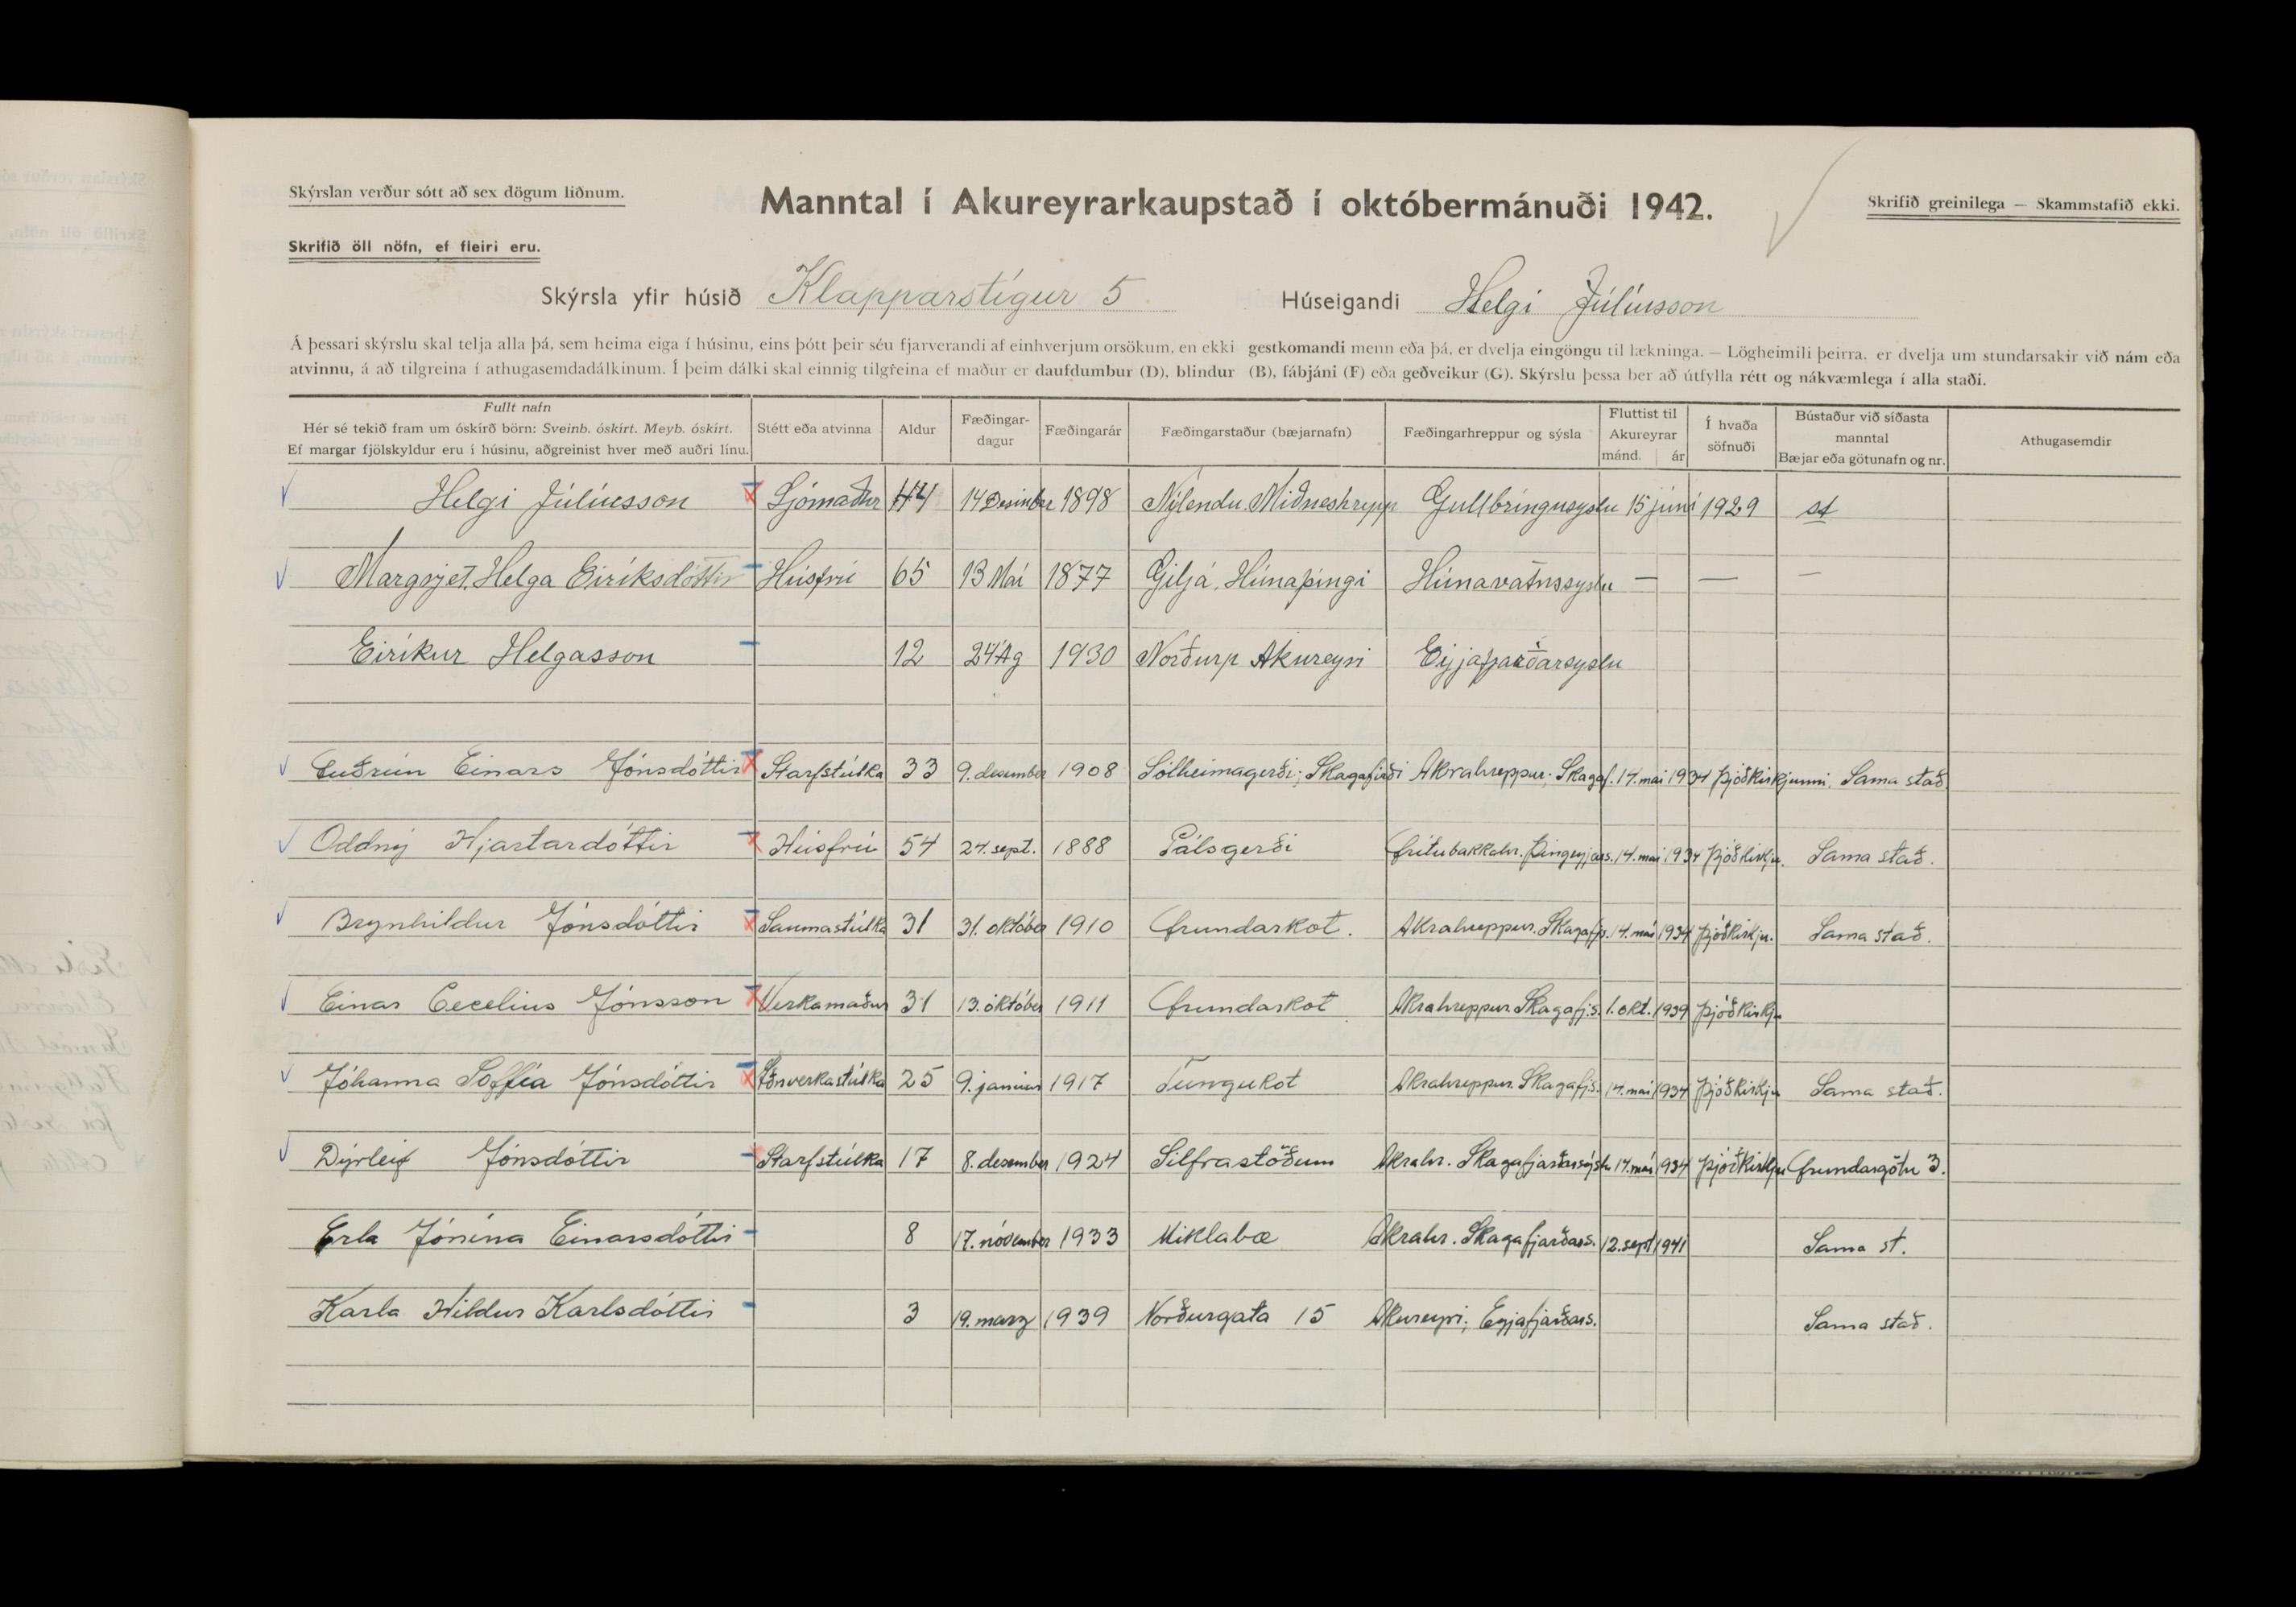 Skýrslan verður sótt að sex dögum liðnum.
Manntal í Akureyrarkaupstað í októbermánuði 1942.
Skrifið greinilega — Skammstafið ekki.
Skrifið öll nöfn, ef fleiri eru.
Skýrsla yfir húsið Klapparstígur 5 Húseigandi Helgi Júlíusson
Á þessari skýrslu skal telja alla þá, sem heima eiga í húsinu, eins þótt þeir séu fjarverandi af einhverjum orsökum, en ekki gestkomandi menn eða þá, er dvelja eingöngu til lækninga. — Lögheimili þeirra, er dvelja um stundarsakir við nám eða
atvinnu, á að tilgreina í athugasemdadálkinum. Í þeim dálki skal einnig tilgreina ef maður er daufdumbur (D), blindur (B), fábjáni (F) eða geðveikur (G). Skýrslu þessa ber að útfylla rétt og nákvæmlega í alla staði.
Fullt nafn
Hér sé tekið fram um óskírð börn: Sveinb. óskírt. Meyb. óskírt.
Ef margar fjölskyldur eru í húsinu, aðgreinist hver með auðri línu.
Stétt eða atvinna
Aldur
Fæðingar-
dagur
Fæðingarár
Fæðingarstaður (bæjarnafn)
Fæðingarhreppur og sýsla
Fluttist til
Akureyrar
mánd. ár
Í hvaða
söfnuði
Bústaður við síðasta
manntal
Bæjar eða götunafn og nr.
Athugasemdir
Helgi Júlíusson Sjómaður 44 14 Desimber 1898 Nýlendu Miðneshrepp Gullbringusyslu 15 júní 1929 st
Margrjet Helga Eiríksdóttir Húsfrú 65 13 Mai 1877 Giljá. Húnaþingi Húnavatnssyslu — — —
Eiríkur Helgasson 12 24 Ag 1930 Norðurp Akureyri Eyjafjarðarsyslu
Guðrún Einars Jónsdóttir Starfstúlka 33 9. desember 1908 Sólheimagerði; Skagafirði Akrahreppur; Skagaf. 14. mai 1934 Þjóðkirkjunni. Sama stað.
Oddný Hjartardóttir Húsfrú 54 24. sept. 1888 Pálsgerði Grítubakkahr. Þingeyjars. 14. mai 1934 Þjóðkirkju. Sama stað.
Brynhildur Jónsdóttir Saumastúlka 31 31. október 1910 Grundarkot. Akrahreppur. Skagafjs. 14. mai 1934 Þjóðkirkju. Sama stað.
Einar Cecelius Jónsson Verkamaður 31 13. október 1911 Grundarkot Akrahreppur Skagafj.s. 1. okt. 1939 Þjóðkirkju
Jóhanna Soffía Jónsdóttir Iðnverkastúlka 25 9. janúar 1917 Tungukot Akrahreppur. Skagafj.s. 14. mai 1934 Þjóðkirkju Sama stað.
Dýrleif Jónsdóttir Starfstúlka 17 8. desember 1924 Silfrastöðum Akrahr. Skagafjarðarsýslu 14. mai 1934 Þjóðkirkju Grundargötu 3.
Erla Jónína Einarsdóttir 8 17. nóvember 1933 Miklabæ Akrahr. Skagafjarðars. 12. sept 1941 Sama st.
Karla Hildur Karlsdóttir 3 19. marz 1939 Norðurgata 15 Akureyri; Eyjafjarðars. Sama stað.